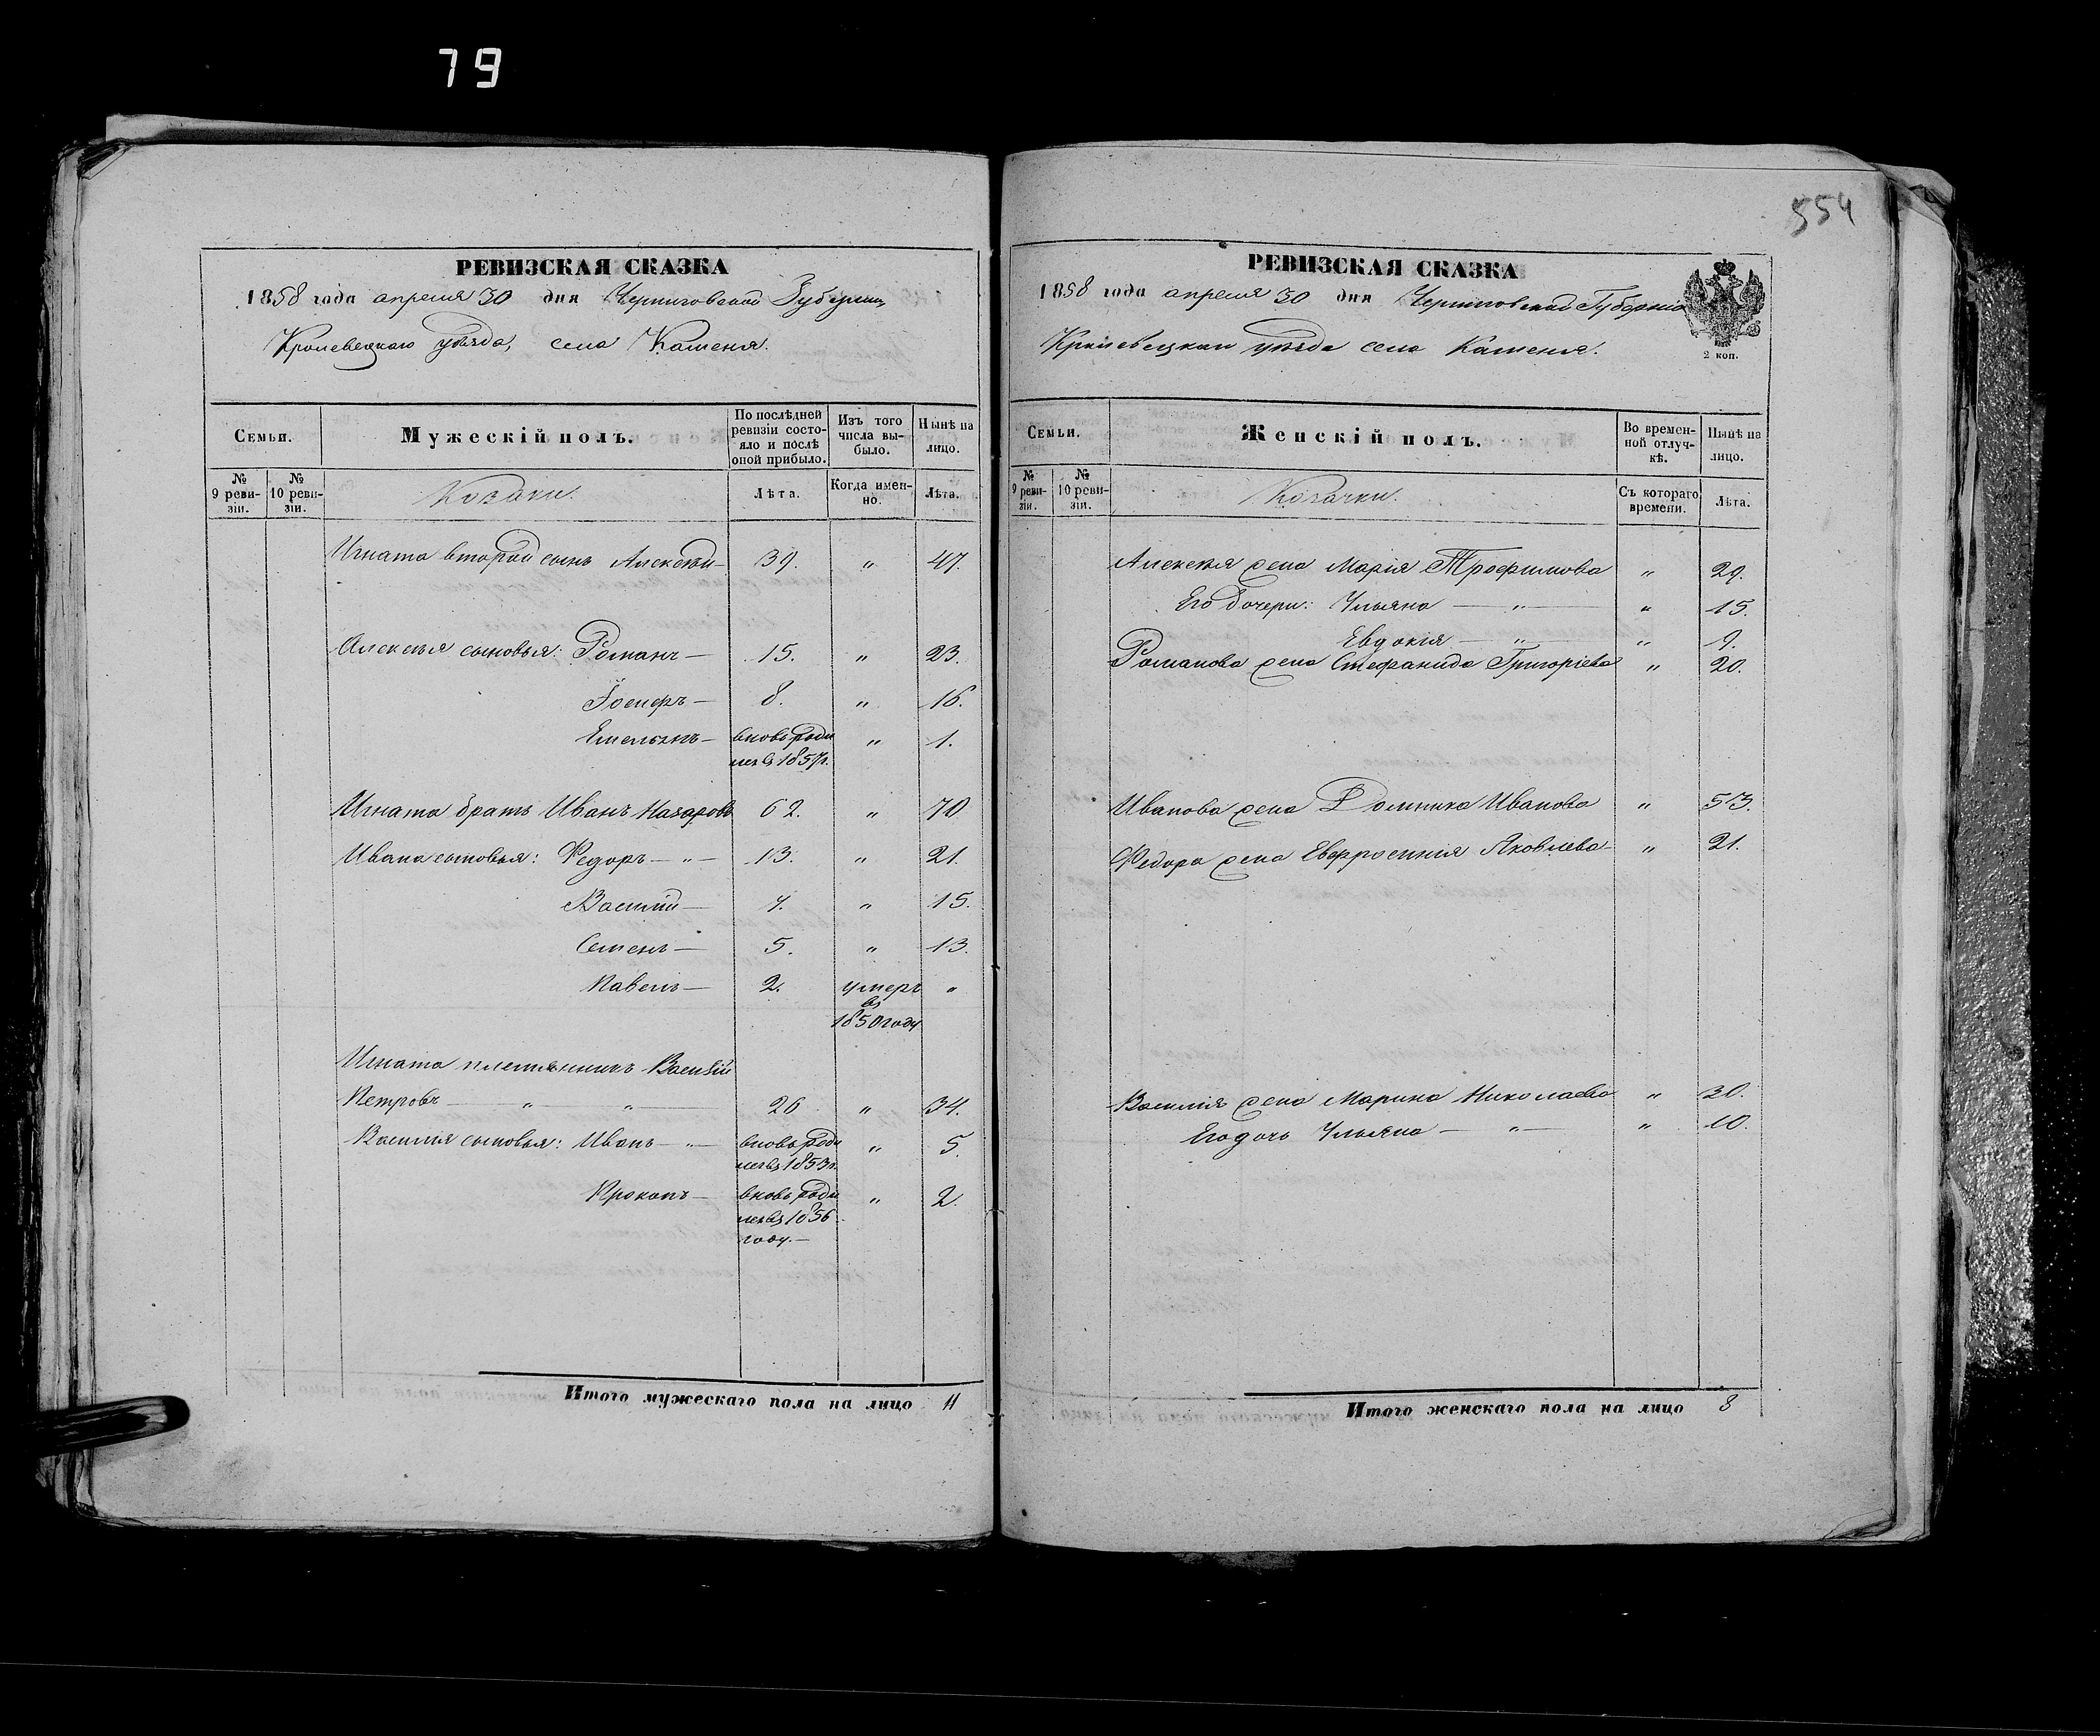 79
554
РЕВИЗСКАЯ СКАЗКА
1858 года апреля 30 дня Черниговской Губернии
Кролевецкаго уѣзда, села Каменя.
Семьи.
Мужескій полъ.
По послѣдней ревизіи состояло и послѣ оной прибыло.
Изъ того числа выбыло.
Нынѣ на лицо.
№ 9 ревизіи.
№ 10 ревизіи.
Козаки.
Лѣта.
Когда именно.
Лѣта.
Игната второй сынъ Алексѣй — 39. " 47.
Алексѣя сыновья: Романъ — 15. " 23.
Іосифъ — 8. " 16.
Емельянъ — вновь роди " 1.
лся въ 1857г.
Игната братъ Иванъ Назаровъ 62. " 70
Ивана сыновья: Федоръ — " — 13. " 21.
Василій — 7. " 15.
Семенъ — 5. " 13.
Павелъ — 2. умеръ "
въ
1850 году
Игната племянникъ Василій
Петровъ — " — " — 26 " 34.
Василія сыновья: Иванъ — " — вновь роди " 5.
лся въ 1853г.
Прокопъ — вновь роди " 2.
лся въ 1856
году. —
Итого мужескаго пола на лицо 11
РЕВИЗСКАЯ СКАЗКА
1858 года апреля 30 дня Черниговской Губерніи
Кролевецкаго уѣзда села Каменя.
2 коп.
Семьи.
Женскій полъ.
Во временной отлучкѣ.
Нынѣ на лицо.
№ 9 ревизіи.
№ 10 ревизіи.
Козачки.
Съ котораго времени.
Лѣта.
Алексѣя жена Марія Трофимова " 29.
Его дочери: Ульяна — " — " 15.
Евдокія — " — " 9.
Романова жена Стефанида Григоріева " 20.
Иванова жена Домника Иванова " 53.
Федора жена Евфросинія Яковлева — " 21.
Василія жена Марина Николаева " 30.
Его дочь Ульяна — " — " 10.
Итого женскаго пола на лицо 8